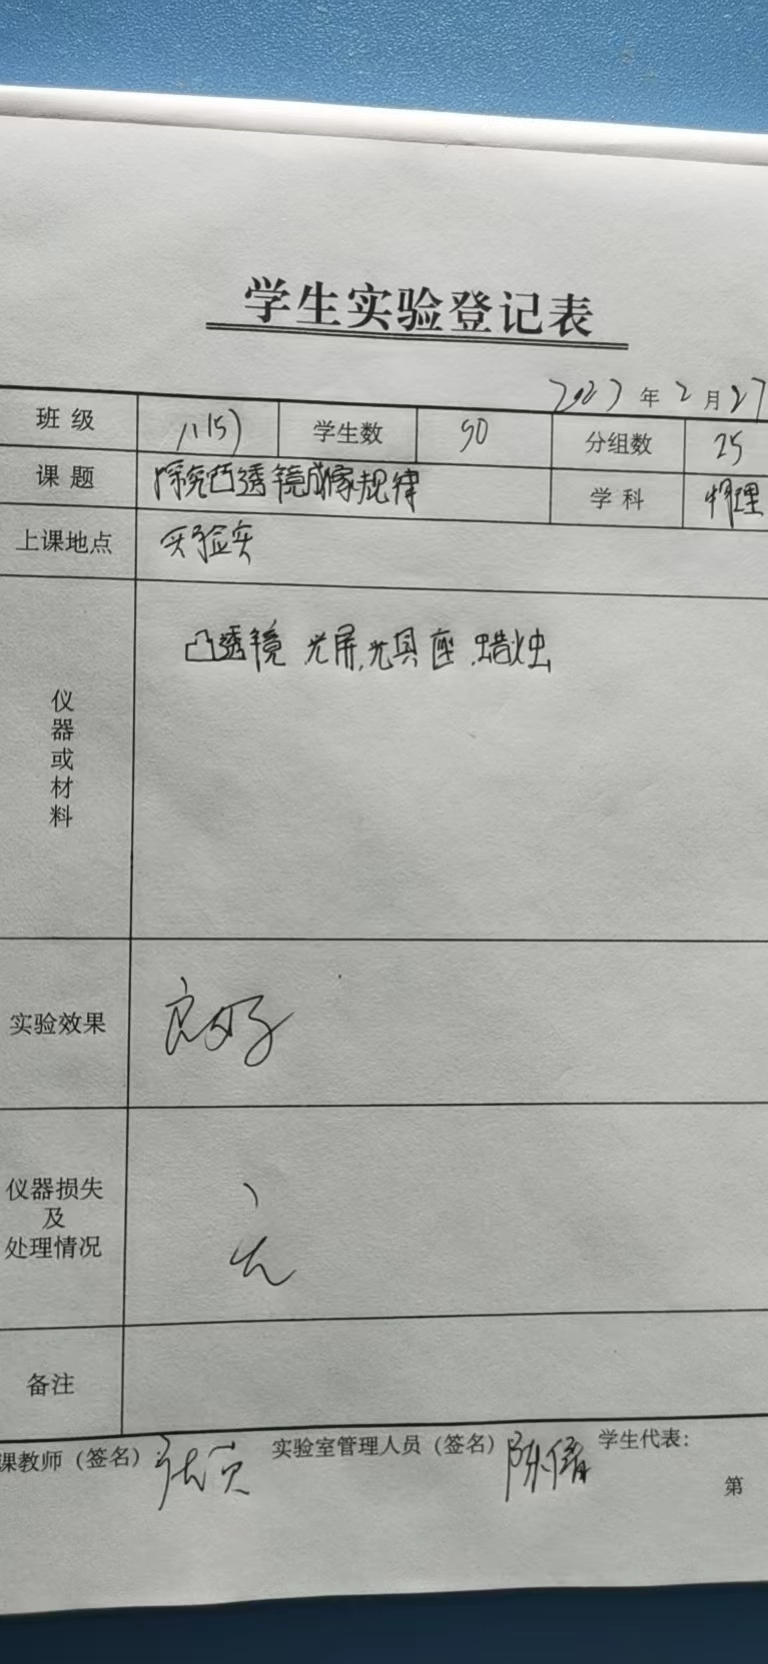 学生实验登记表
年2月27
班级 八(5) 学生数 50 分组数 25
课题 探究凸透镜成像规律 学科 物理
上课地点 实验室
仪器或材料 凸透镜 光屏.光具座.蜡烛
实验效果 良好
仪器损失
及
处理情况
无
备注
课教师（签名） 实验室管理人员（签名） 学生代表：
第